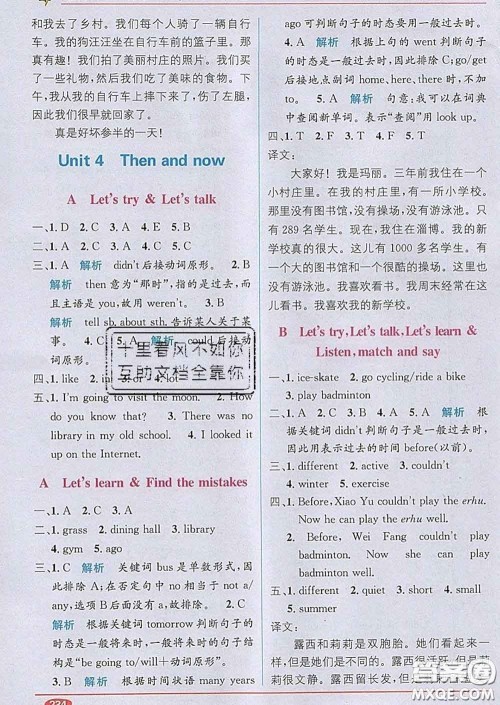 和我去了乡村。我们每个人骑了一辆自行
车。我的狗汪汪坐在自行车前的篮子里。那
真有趣！我们拍了美丽村庄的照片。我们买
了一些礼物，然后我们吃了美味的食物。下
午，我从我的自行车上摔下来了，伤了左腿，
因此我们很早就回家了。
真是好坏参半的一天！
Unit 4 Then and now
A Let's try & Let's talk
一、1. D 2. C 3. A 4. E 5. B
二、1. B 2. C 3. A 4. A 5. C
三、1. A 解析 didn't 后接动词原形。 2. B
解析 then 意为“那时”，指的是过去，而
且主语是 you，故用 weren't。 3. B
解析 tell sb. about sth. 告诉某人关于某
事。 4. C 5. A 解析 could 后接动
词原形。
四、1. no 2. in 3. 4. lot
五、1. I'm going to visit the moon. 2. How
do you know that? 3. There was no
library in my old school. 4. I looked it
up on the Internet.
A Let's learn & Find the mistakes
一、1. B 2. A 3. C 4. A
二、1. grass 2. dining hall 3. library
4. gym 5. ago
三、1. C 解析 关键词 bus 是单数形式，因
此排除 A；在否定句中 not 相当于 not a/
any，选项 B 后面没有 a，故排除。 2. C
解析 根据关键词 tomorrow 判断句子的
时态是一般将来时，一般将来时的句子结
构是“be going to/will+动词原形”。
3. B 解析 根据时间状语 many years
ago 可判断句子的时态是一般过去时。
4. B 解析 根据上句的 went 判断句子
的时态是一般过去时，因此排除 C；go/get
后接地点副词 home、here、there 时，不加
to。 5. A 解析 句意：我可以在词典
中查阅新单词。表示“查阅”用 look up。
四、1. T 2. F 3. F 4. F 5. T
译文：
大家好！我是玛丽。三年前我住在一
个小村庄里。在我的村庄里，有一所小学校。
那里没有图书馆，没有操场，也没有游泳池。只
有 289 名学生。现在，我住在淄博。我的新
学校真的很大。这儿有 1000 多名学生。有
一个大的图书馆和一个很酷的操场。这儿还
有游泳池。我喜欢看书。我周末经常在这
儿看书。我喜欢我的新学校。
B Let's try, Let's talk, Let's learn &
Listen, match and say
一、1. ice-skate 2. go cycling/ride a bike
3. play badminton
二、1. C 2. A 3. A 4. B 5. A 解析
根据关键词 did 可判断句子是一般过去时，
因此用表示过去的时间 before(以前)。
三、1. different 2. active 3. everyone
4. winter 5. exercise
四、1. Before, Xiao Yu couldn't play the
erhu. Now he can play the erhu well.
2. Before, Wei Fang couldn't play
badminton. Now she can play
badminton well.
五、(一)1. different 2. quiet 3. short 4. small
5. summer
译文：
露西和莉莉是双胞胎。她们看起来一
样，但是她们是不同的。露西很活跃，但是莉
莉很文静。露西留长发，
十里春风不如你
互助文档全靠你
答案圈
MXQE.COM
224